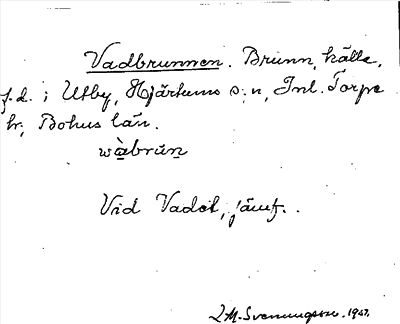 Vadbrunnen. Brunn, källa,
f.d. i Utby, Hjärtums s:n, Inl. Torpe
hr, Bohus län.
wàbrún
Vid Vadet, jämf..
L.M. Svenungsson. 1947.